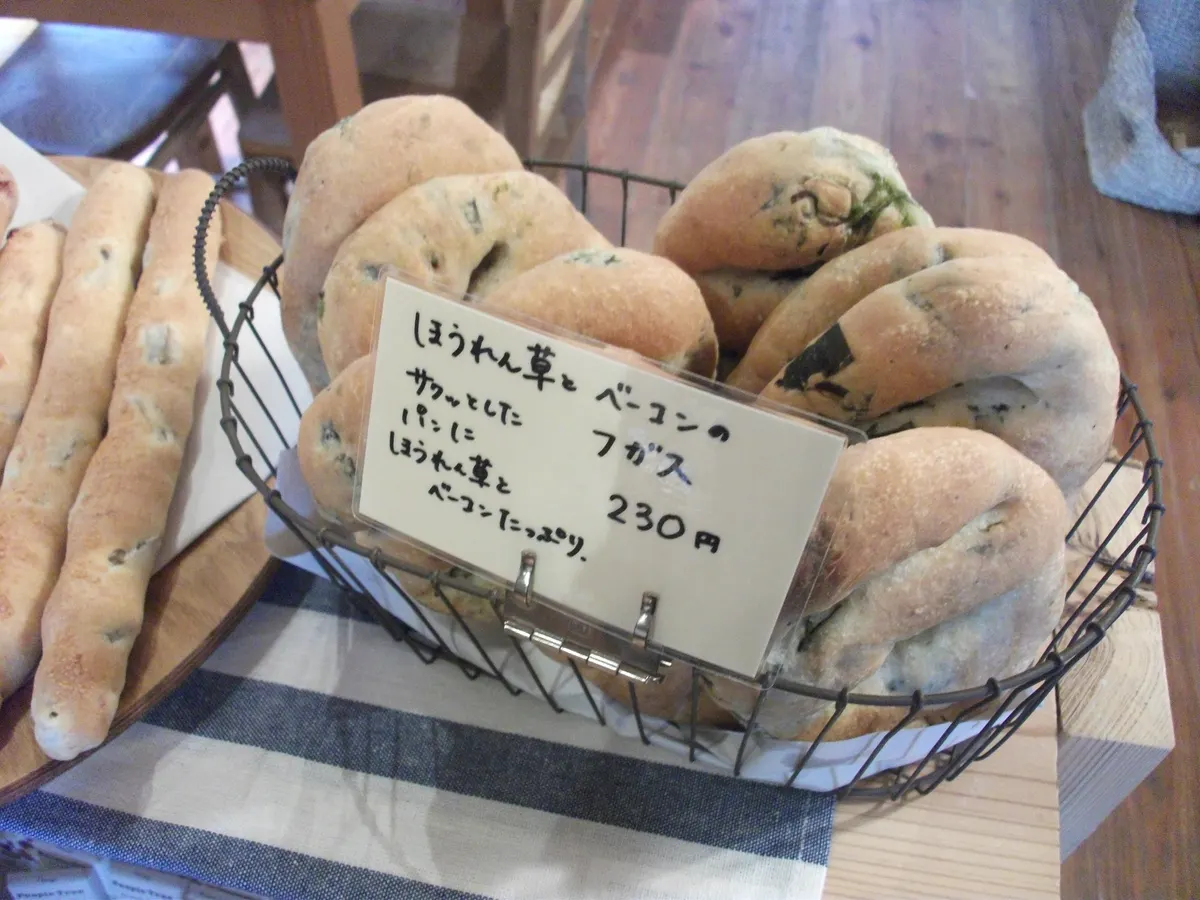 ほうれん草と ベーコンの
フガス
サクッとした
パンに
ほうれん草と
ベーコンたっぷり.
230円
People Tree